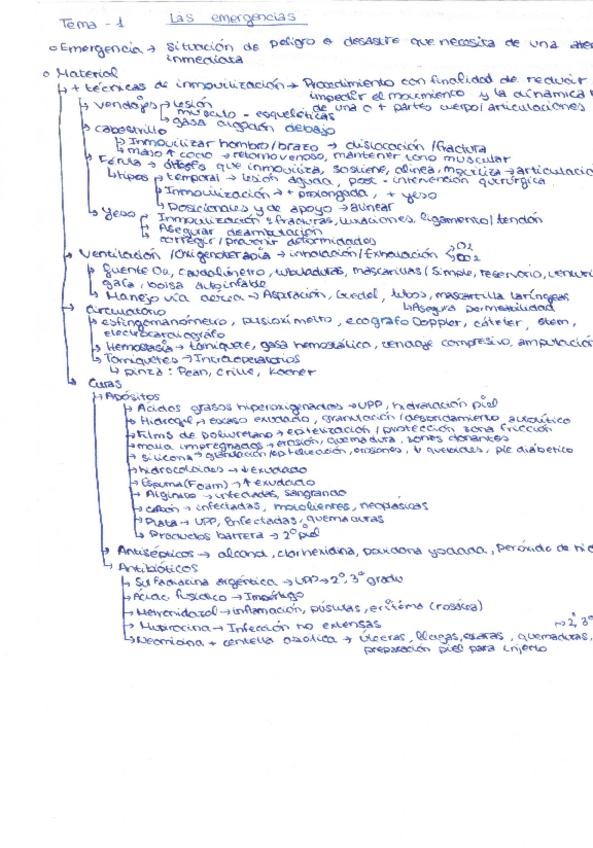 Tema - 1 Las emergencias
Emergencia → Situación de peligro o desastre que necesita de una aten
inmediata
Material
+ técnicas de inmovilización → Procedimiento con finalidad de reducir
impedir el movimiento y la dinámica
de una o + partes cuerpo/articulaciones
vendajes → lesión
músculo-esqueléticas
gasa algodón debajo
cabestrillo
Inmovilizar hombro/brazo → dislocación/fractura
mano ↑ codo → retorno venoso, mantener tono muscular
Férula → que inmoviliza, sostiene, alinea, moviliza → articulacio
tipos temporal → lesión aguda, post-intervención quirúrgica
Inmovilización → + prolongada, + yeso
Posicionales y de apoyo → alinear
yeso Inmovilización: fracturas, luxaciones, ligamento/tendón
Asegurar deambulación
corregir/prevenir deformidades
Ventilación/Oxigenoterapia → inhalación/Exhalación O2
CO2
fuente O2, caudalímetro, tubuladuras, mascarillas (simple, reservorio, venturi
gafa, bolsa autoinflable
Manejo vía aérea → Aspiración, Guedel, tubos, mascarilla laríngeas
Asegura permeabilidad
Circulatorio
esfingomanómetro, pulsioxímetro, ecografo Doppler, catéter,
electrocardiógrafo
Hemostasia → torniquete, gasa hemostática, vendaje compresivo, amputación
Torniquetes → Intraoperatorios
pinza: Pean, Crille, Kocher
Curas
Apósitos
Acidos grasos hiperoxigenados → UPP, hidratación piel
Hidrogel → escaso exudado, granulación/desbridamiento autolítico
Films de poliuretano → epitelización/protección zona fricción
malla impregnados → erosión, quemadura, zonas donantes
silicona → granulación/epitelización, erosiones, pie diabético
hidrocoloides → ↓ exudado
Espuma (Foam) → ↑ exudado
Alginato → infectadas, sangrando
carbón → infectadas, malolientes, neoplásicas
Plata → UPP, Enfectadas, quemaduras
Productos barrera → 2º piel
Antisépticos → alcohol, clorhexidina, povidona yodada, Peróxido de hid
Antibióticos
Sulfadiacina argéntica → UPP → 2º, 3º grado
Ácido fusídico → Impétigo
Metronidazol → inflamación, pústulas, eritema (rosácea)
Mupirocina → Infección no extensas
→ 2º, 3º
Neomicina + centella asiática → Úlceras, llagas, escaras, quemaduras,
preparación piel para injerto